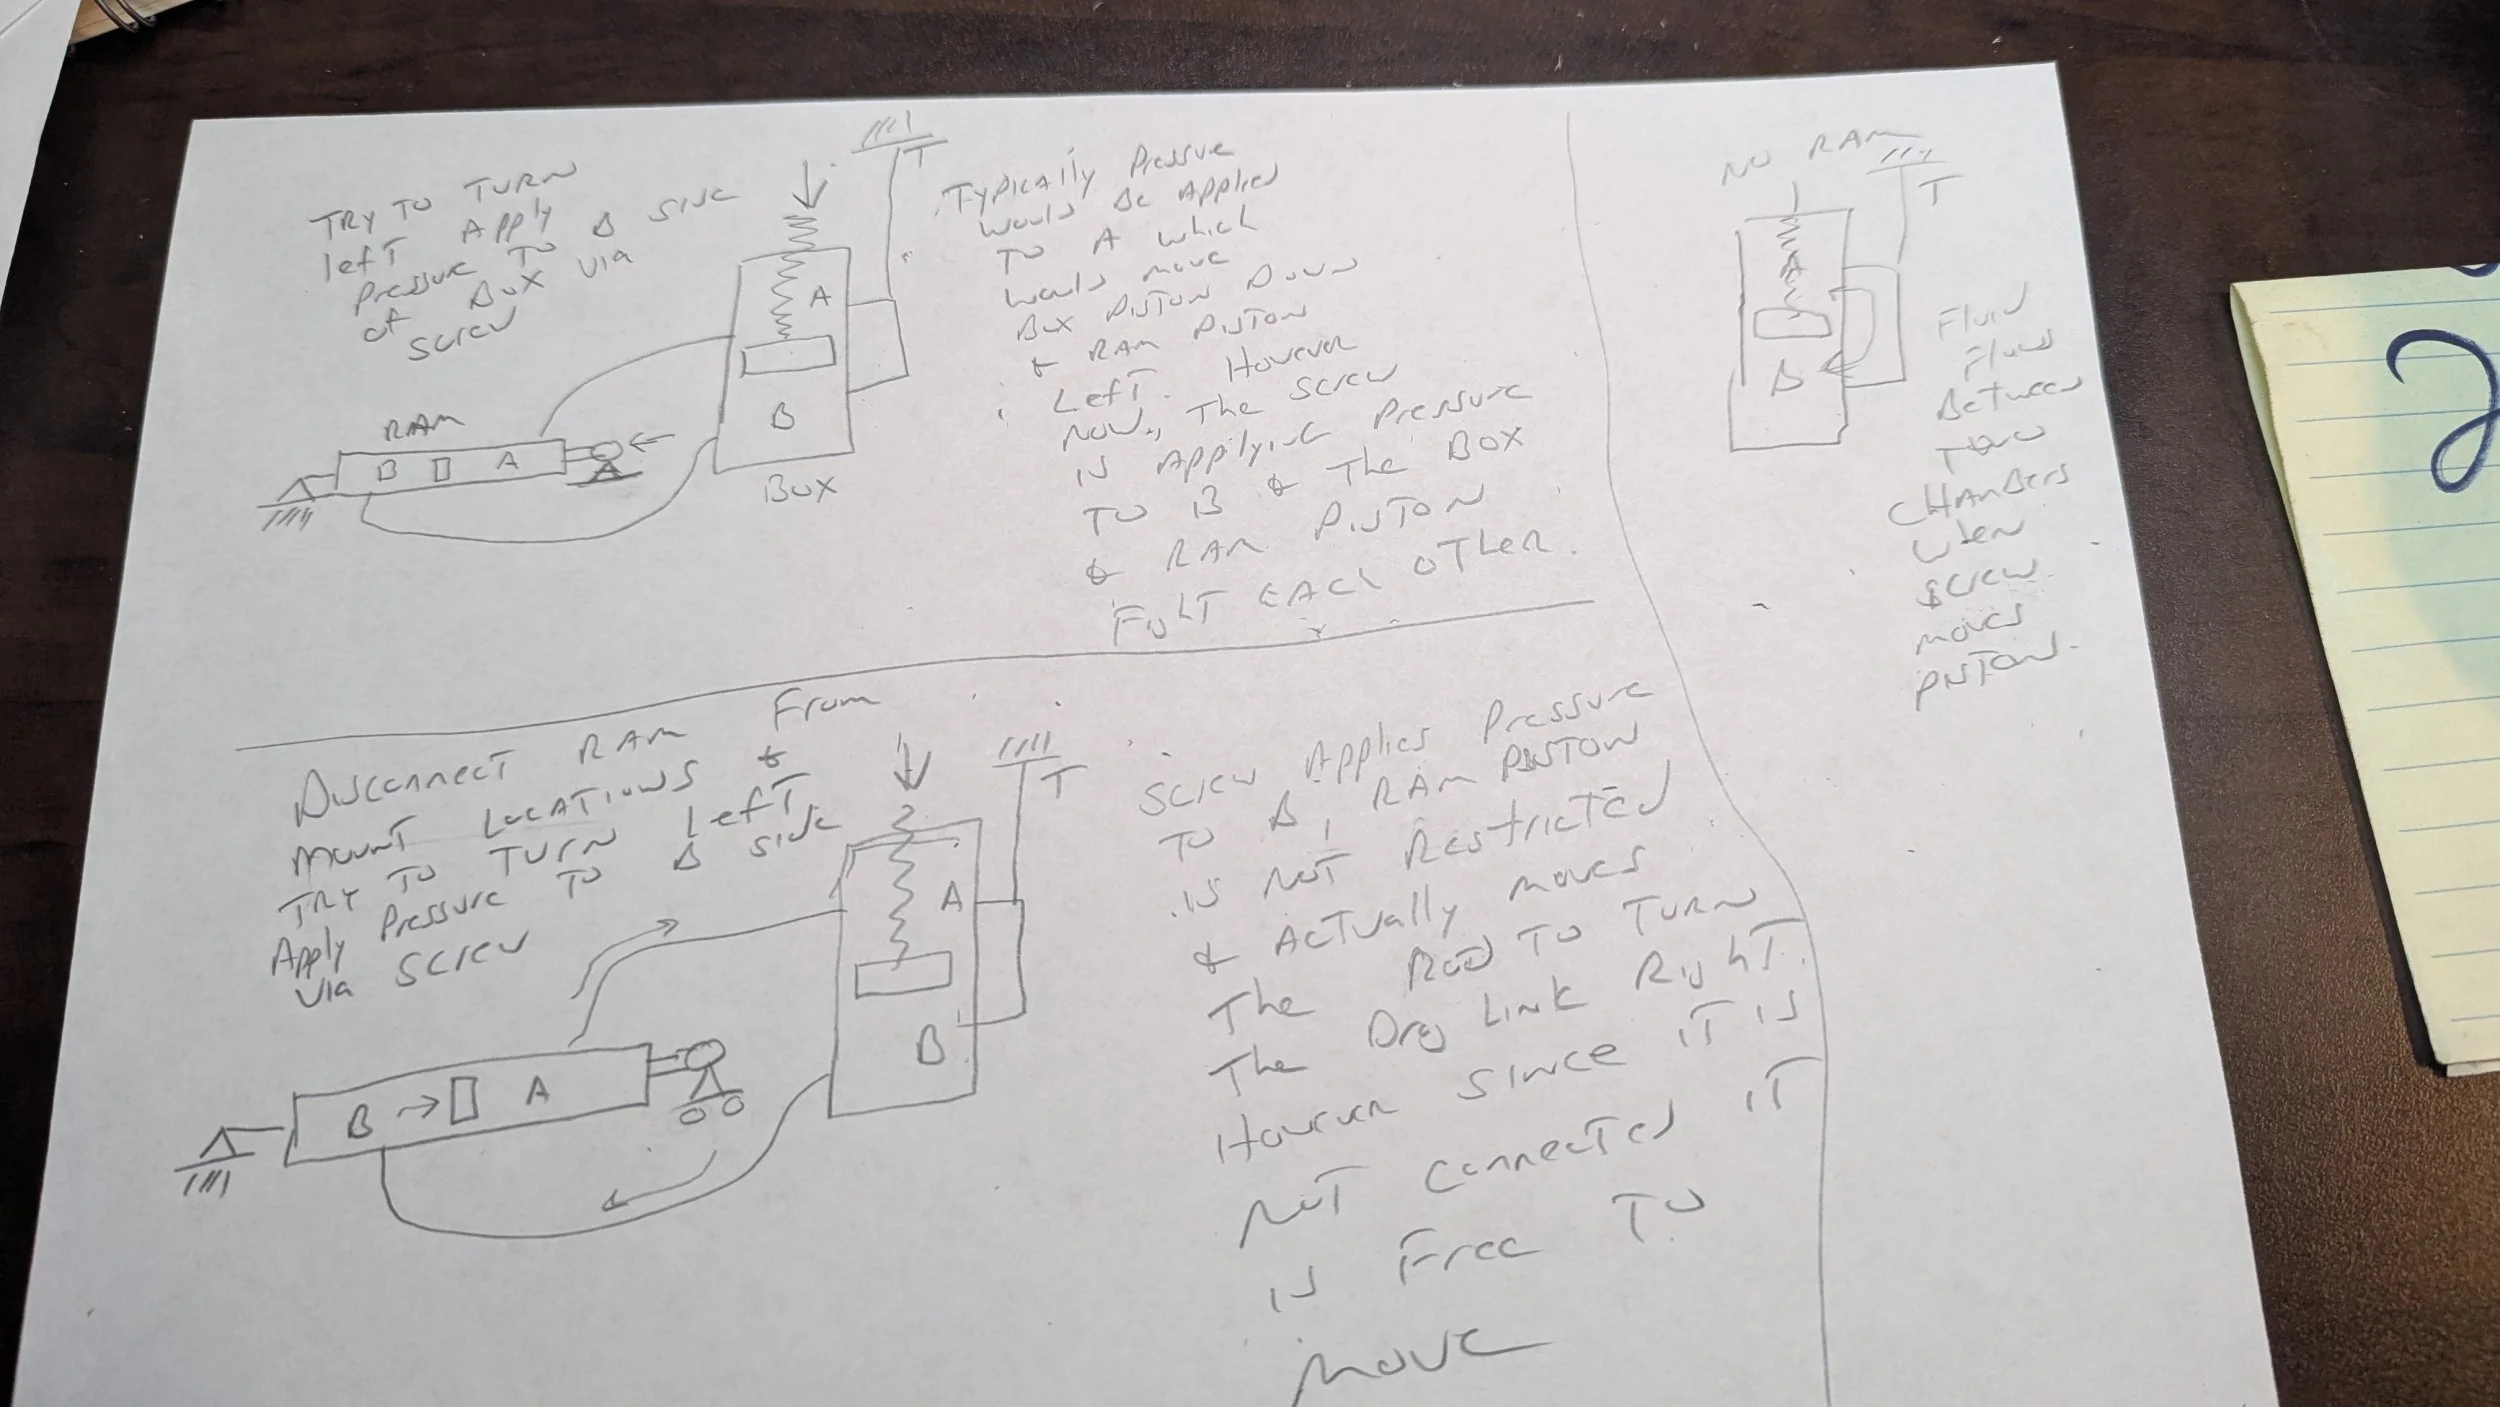 TRY TO TURN
left Apply
Pressure TO B SIDE
of BOX via
SCREW
T
A
B
BOX
RAM
B A
Typically Pressure
would Be Applied
TO A which
would move
BOX PISTON DOWN
& RAM PISTON
Left. However
NOW, The SCREW
is Applying Pressure
TO B & The BOX
& RAM PISTON
FIGHT EACH OTHER.
NO RAM
T
A
B
Fluid
Flows
Between
Two
CHAMBERS
when
SCREW
moves
PISTON.
DISCONNECT RAM From
MOUNT LOCATIONS &
TRY TO TURN Left
Apply Pressure TO B SIDE
Via SCREW
T
A
B
B A
SCREW Applies Pressure
TO B, RAM PISTON
is NOT Restricted
& ACTUAlly moves
The ROD TO TURN
The Drag LINK RIGHT.
However SINCE IT IS
NOT CONNECTED IT
is Free TO
move
2